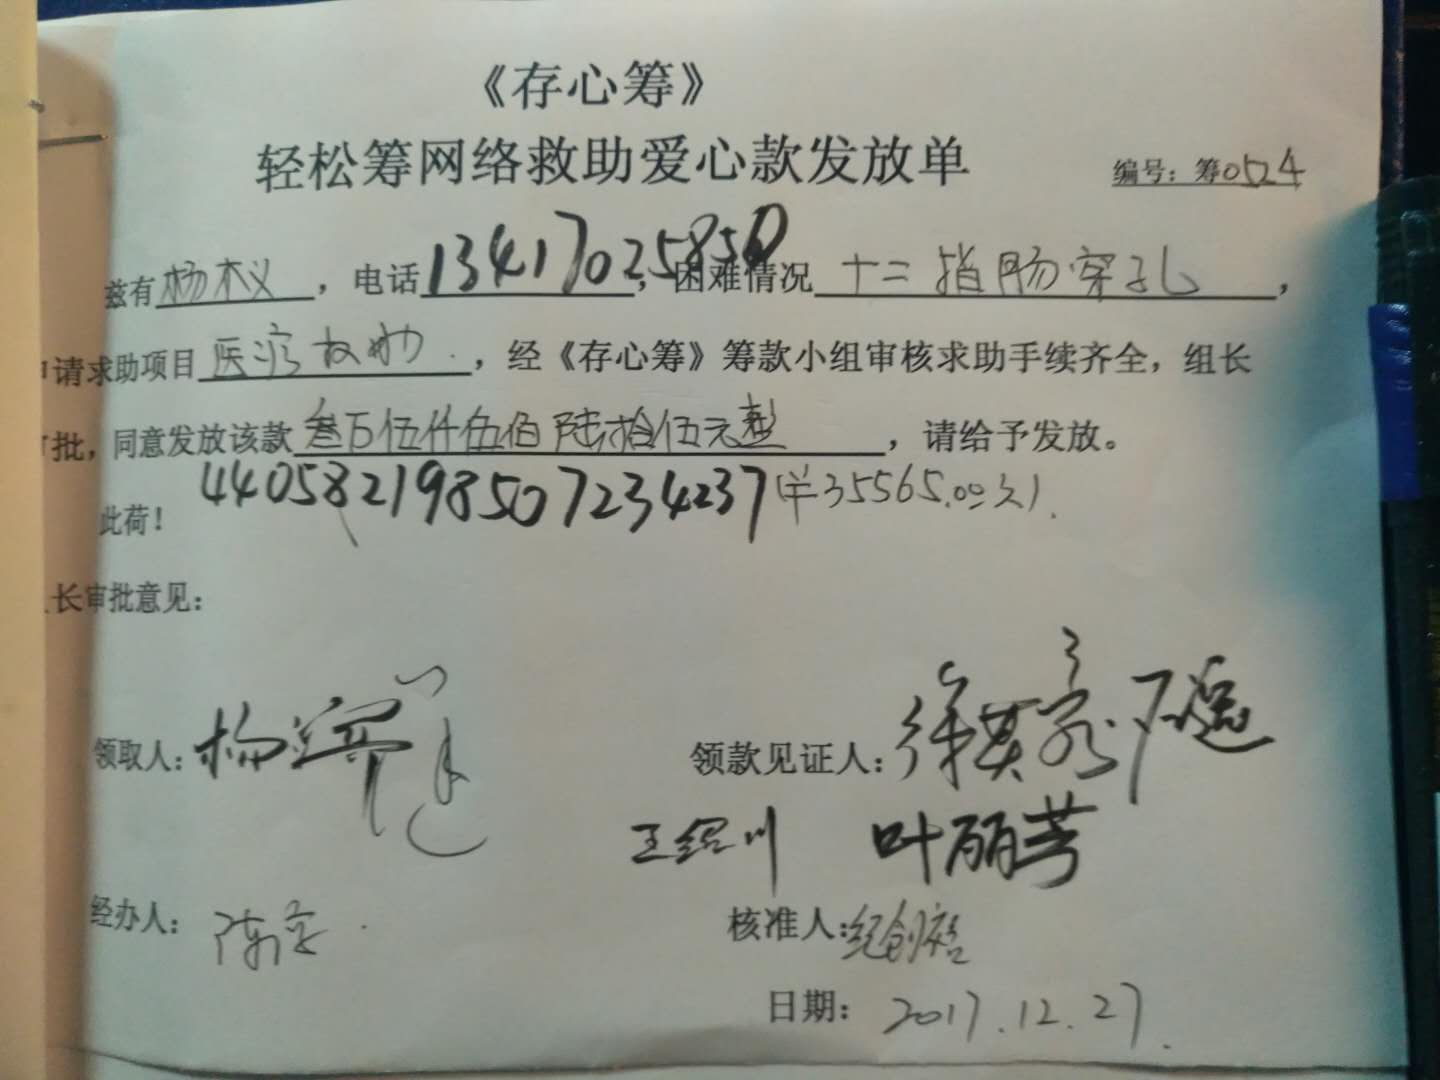 《存心筹》
轻松筹网络救助爱心款发放单
编号：筹0524
兹有杨木义，电话13417025850，困难情况十二指肠穿孔，
申请求助项目医疗救助.，经《存心筹》筹款小组审核求助手续齐全，组长
审批，同意发放该款叁万伍仟伍佰陆拾伍元整，请给予发放。
440582198507234237（¥35565.00元）.
此荷！
长审批意见：
领取人：杨
领款见证人：徐其家
王绍川 叶丽芳
经办人：陈
核准人：纪创
日期：2017.12.27.